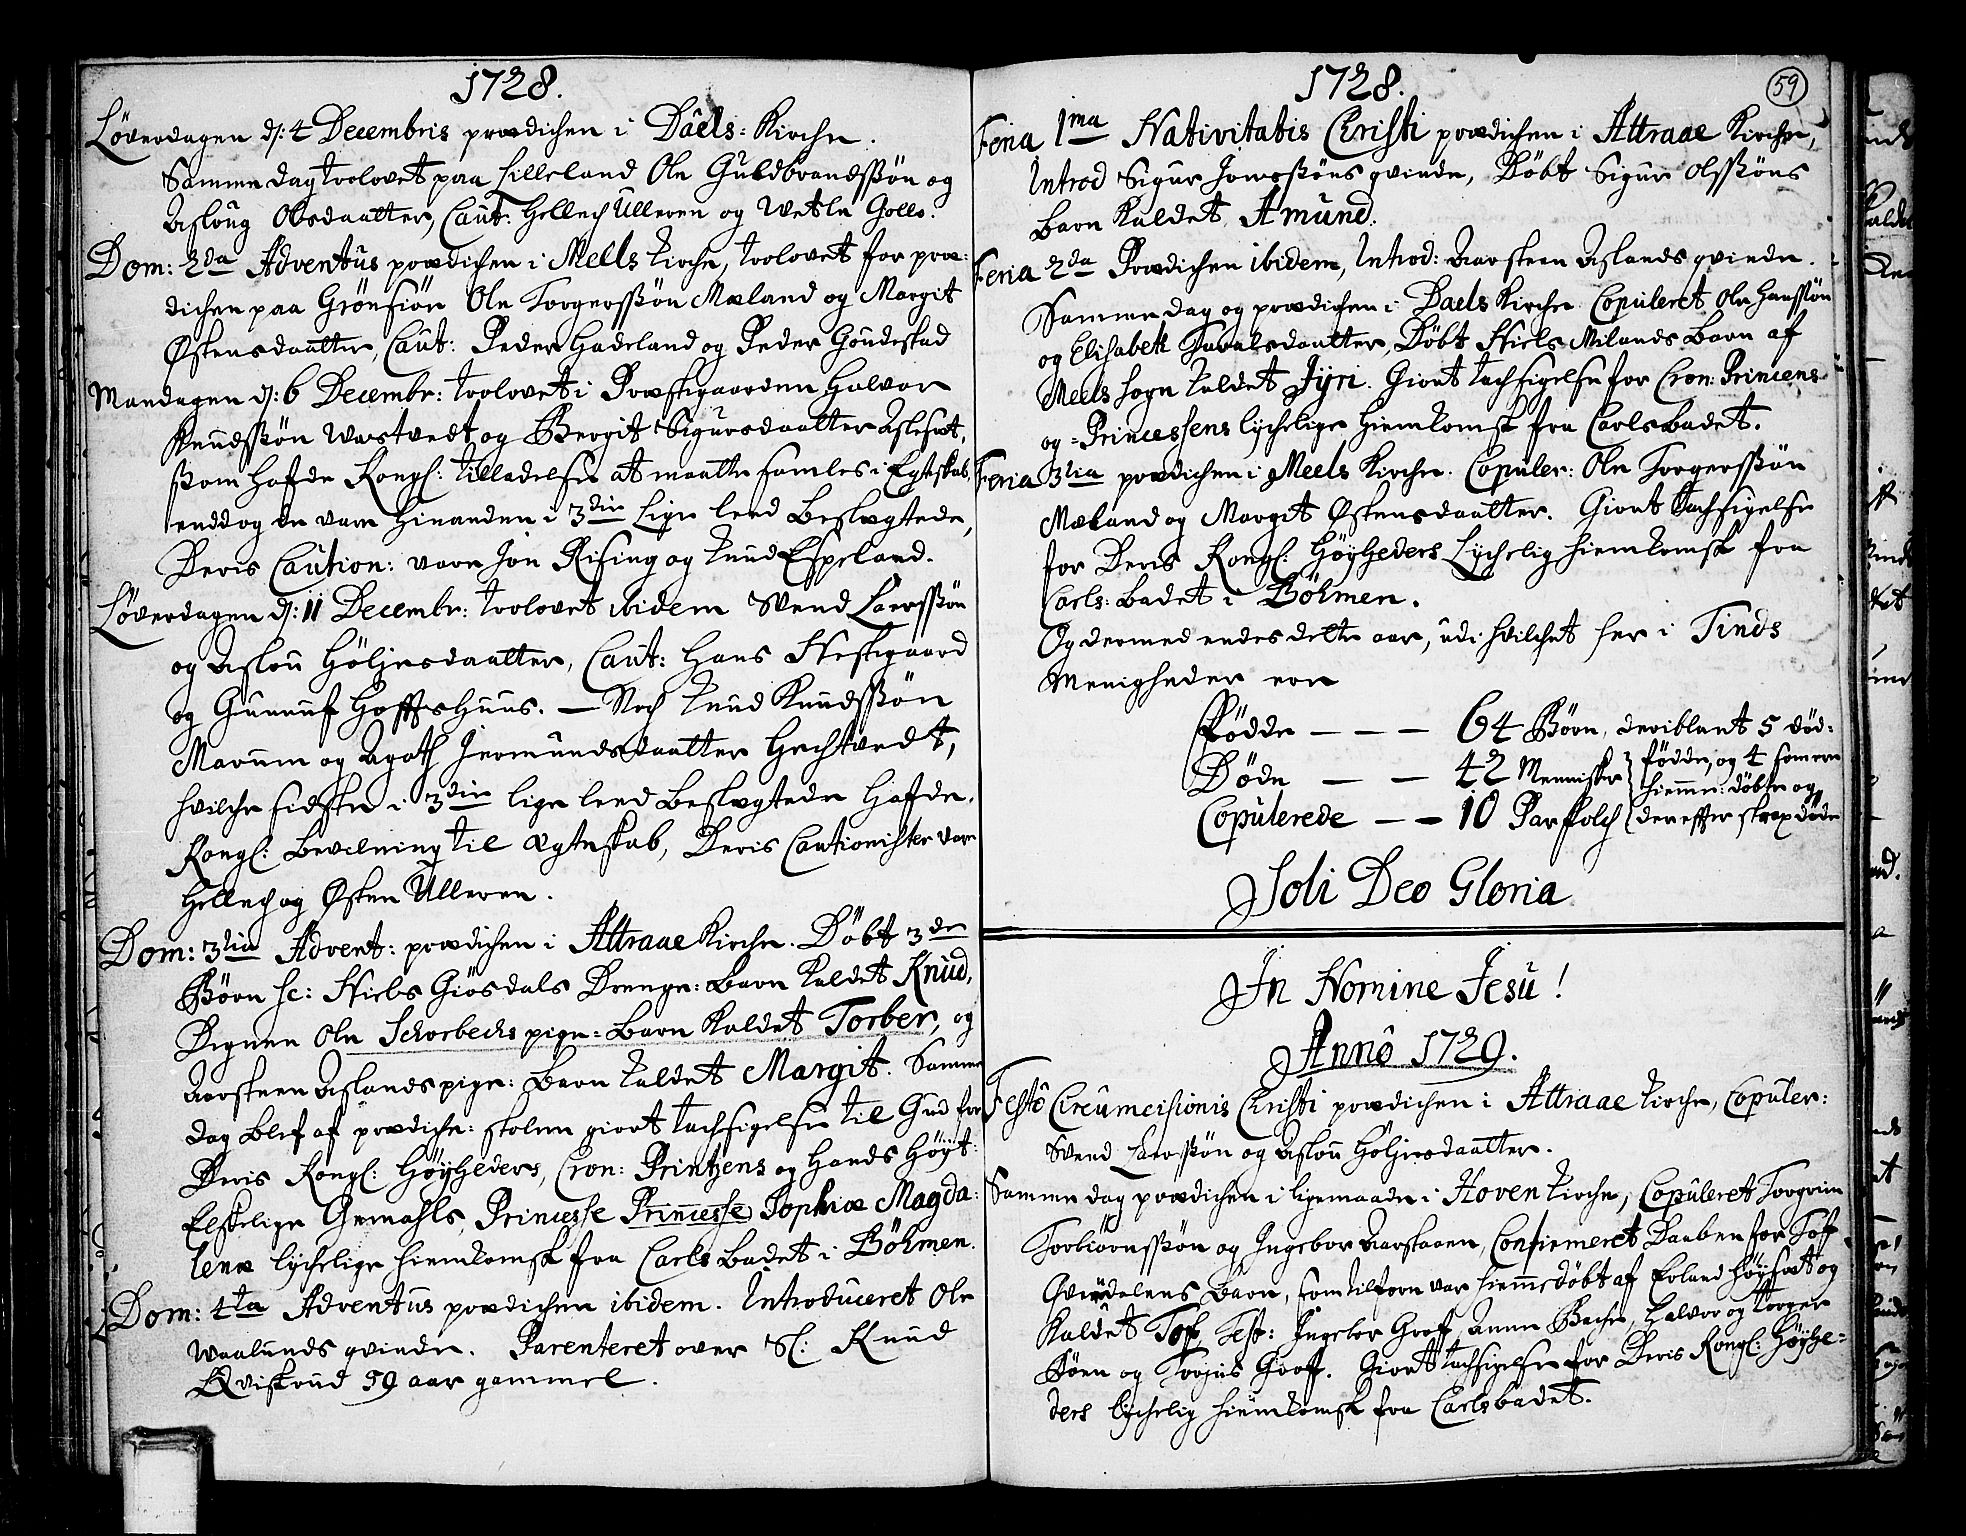 1728.
Løverdagen d: 4 Decembris prædichen i Dåels: Kirche.
Samme dag troolovet paa Lilleland Ole Guldbrandssøn og
Asloug Olsdaatter, Caut: Hellech Ulleren og Wetle Gollo.
Dom: 2da Adventus prædichen i Mells Kirche, troolovet for præ:
dichen paa Grønsiøn Ole Torgerssøn Mæland og Margit
Østensdaatter, Caut: Peder Hadeland og Peder Goudestad
Mandagen d: 6 Decembr: troolovet i Præstgaarden Halvor
Knudssøn Varstvedt og Bergit Sigursdaatter
som hafde Kongl: tilladelse at maatte samles i Egteskab,
enddog de vare hinanden i 3die Lige leed beslægtede,
Deris Caution: vare Jon Rising og Knud Espeland.
Løverdagen d: 11 Decembr: troolovet ibidem Svend Larssøn
og Aslou Høljesdaatter, Caut: Hans Nestegaard
og Gunnuf Hoffshuus. — Noch Knud Knudssøn
Marum og Agath Jermundsdaatter Hechtvedt,
hvilche sidste i 3die lige leed beslegtede hafde
Kongl: bevilning til ægteskab, Deris Cautionister vare
Hellech og Østen Ulleren.
Dom: 3tia Advent: prædichen i Attraae Kirche. Døbt 3de
Børn sc: Niels Giøsdals Drenge: barn kaldet Knud,
Degnen Ole Schorbechs pige: barn kaldet Torber, og
Aarsteen Aslands pige: barn kaldet Margit. Samme
dag blef af prædiche: stolen giort tachsigelse til Gud for
Deris Kongl: Høyheders, Cron: Printzens og Hands Høyt:
Elskelige Gemahls Princesse Princesse Sophiæ Magda:
lenæ lychelige hiemkomst fra Carls badet i Böhmen.
Dom: 4ta Adventus prædichen ibidem. Introduceret Ole
Waalunds qvinde. Parenteret over Sl: Knud
Qvisrud 59 aar gammel.
1728.
59
Feria 1ma Nativitatis Christi prædichen i Attraae Kirche,
Introd Sigur Jonssøns qvinde, Døbt Sigur Olssøns
barn kaldet Amund.
Feria 2da Prædichen ibidem, Introd: Aarsteen Aslands qvinde.
Samme dag og prædichen i Daels Kirche Copuleret Ole Hanssøn
og Elisabeth Tavalsdaatter, Døbt Niels Milands barn af
Meels sogn kaldet Jyri. Giort tachsigelse for Cron: Princens
og = Princessens lychelige hiemkomst fra Carlsbadet.
Feria 3tia prædichen i Meels Kirche. Copuler: Ole Torgerssøn
Mæland og Margit Østensdaatter. Giort tachsigelse
for Deris Kongl: Høyheders Lychelig hiemkomst fra
Carls: badet i Böhmen.
Og dermed endes dette aar, udi hvilchet her i Tinds
Menigheder ere
Fødde — — — 64 Børn, deriblant 5 død:
fødde, og 4 som ere
Døde — — 42 Mennisker
hiemme: døbte og
Copulerede — — 10 Par folch
der effter strax døde
Soli Deo Gloria
In Nomine Jesu!
Anno 1729.
Festo Circumcisionis Christi prædichen i Attraae Kirche, Copuler:
Svend Larssøn og Aslou Høljesdaatter.
Samme dag prædichen i ligemaade i Hoven Kirche, Copuleret Torgrim
Torbiørnssøn og Ingebor Aarstaaen, Confirmeret Daaben for Tof
Gvendelens barn, som tilforn var hiemmedøbt af Erland Høysæt og
kaldet Tof, Test: Ingebor Groff, Anne Bache, Halvor og Torger
Børn og Torjus Groff. Giort tachsigelse for Deris Kongl: Høyhe=
ders lychelig hiemkomst fra Carlsbadet.